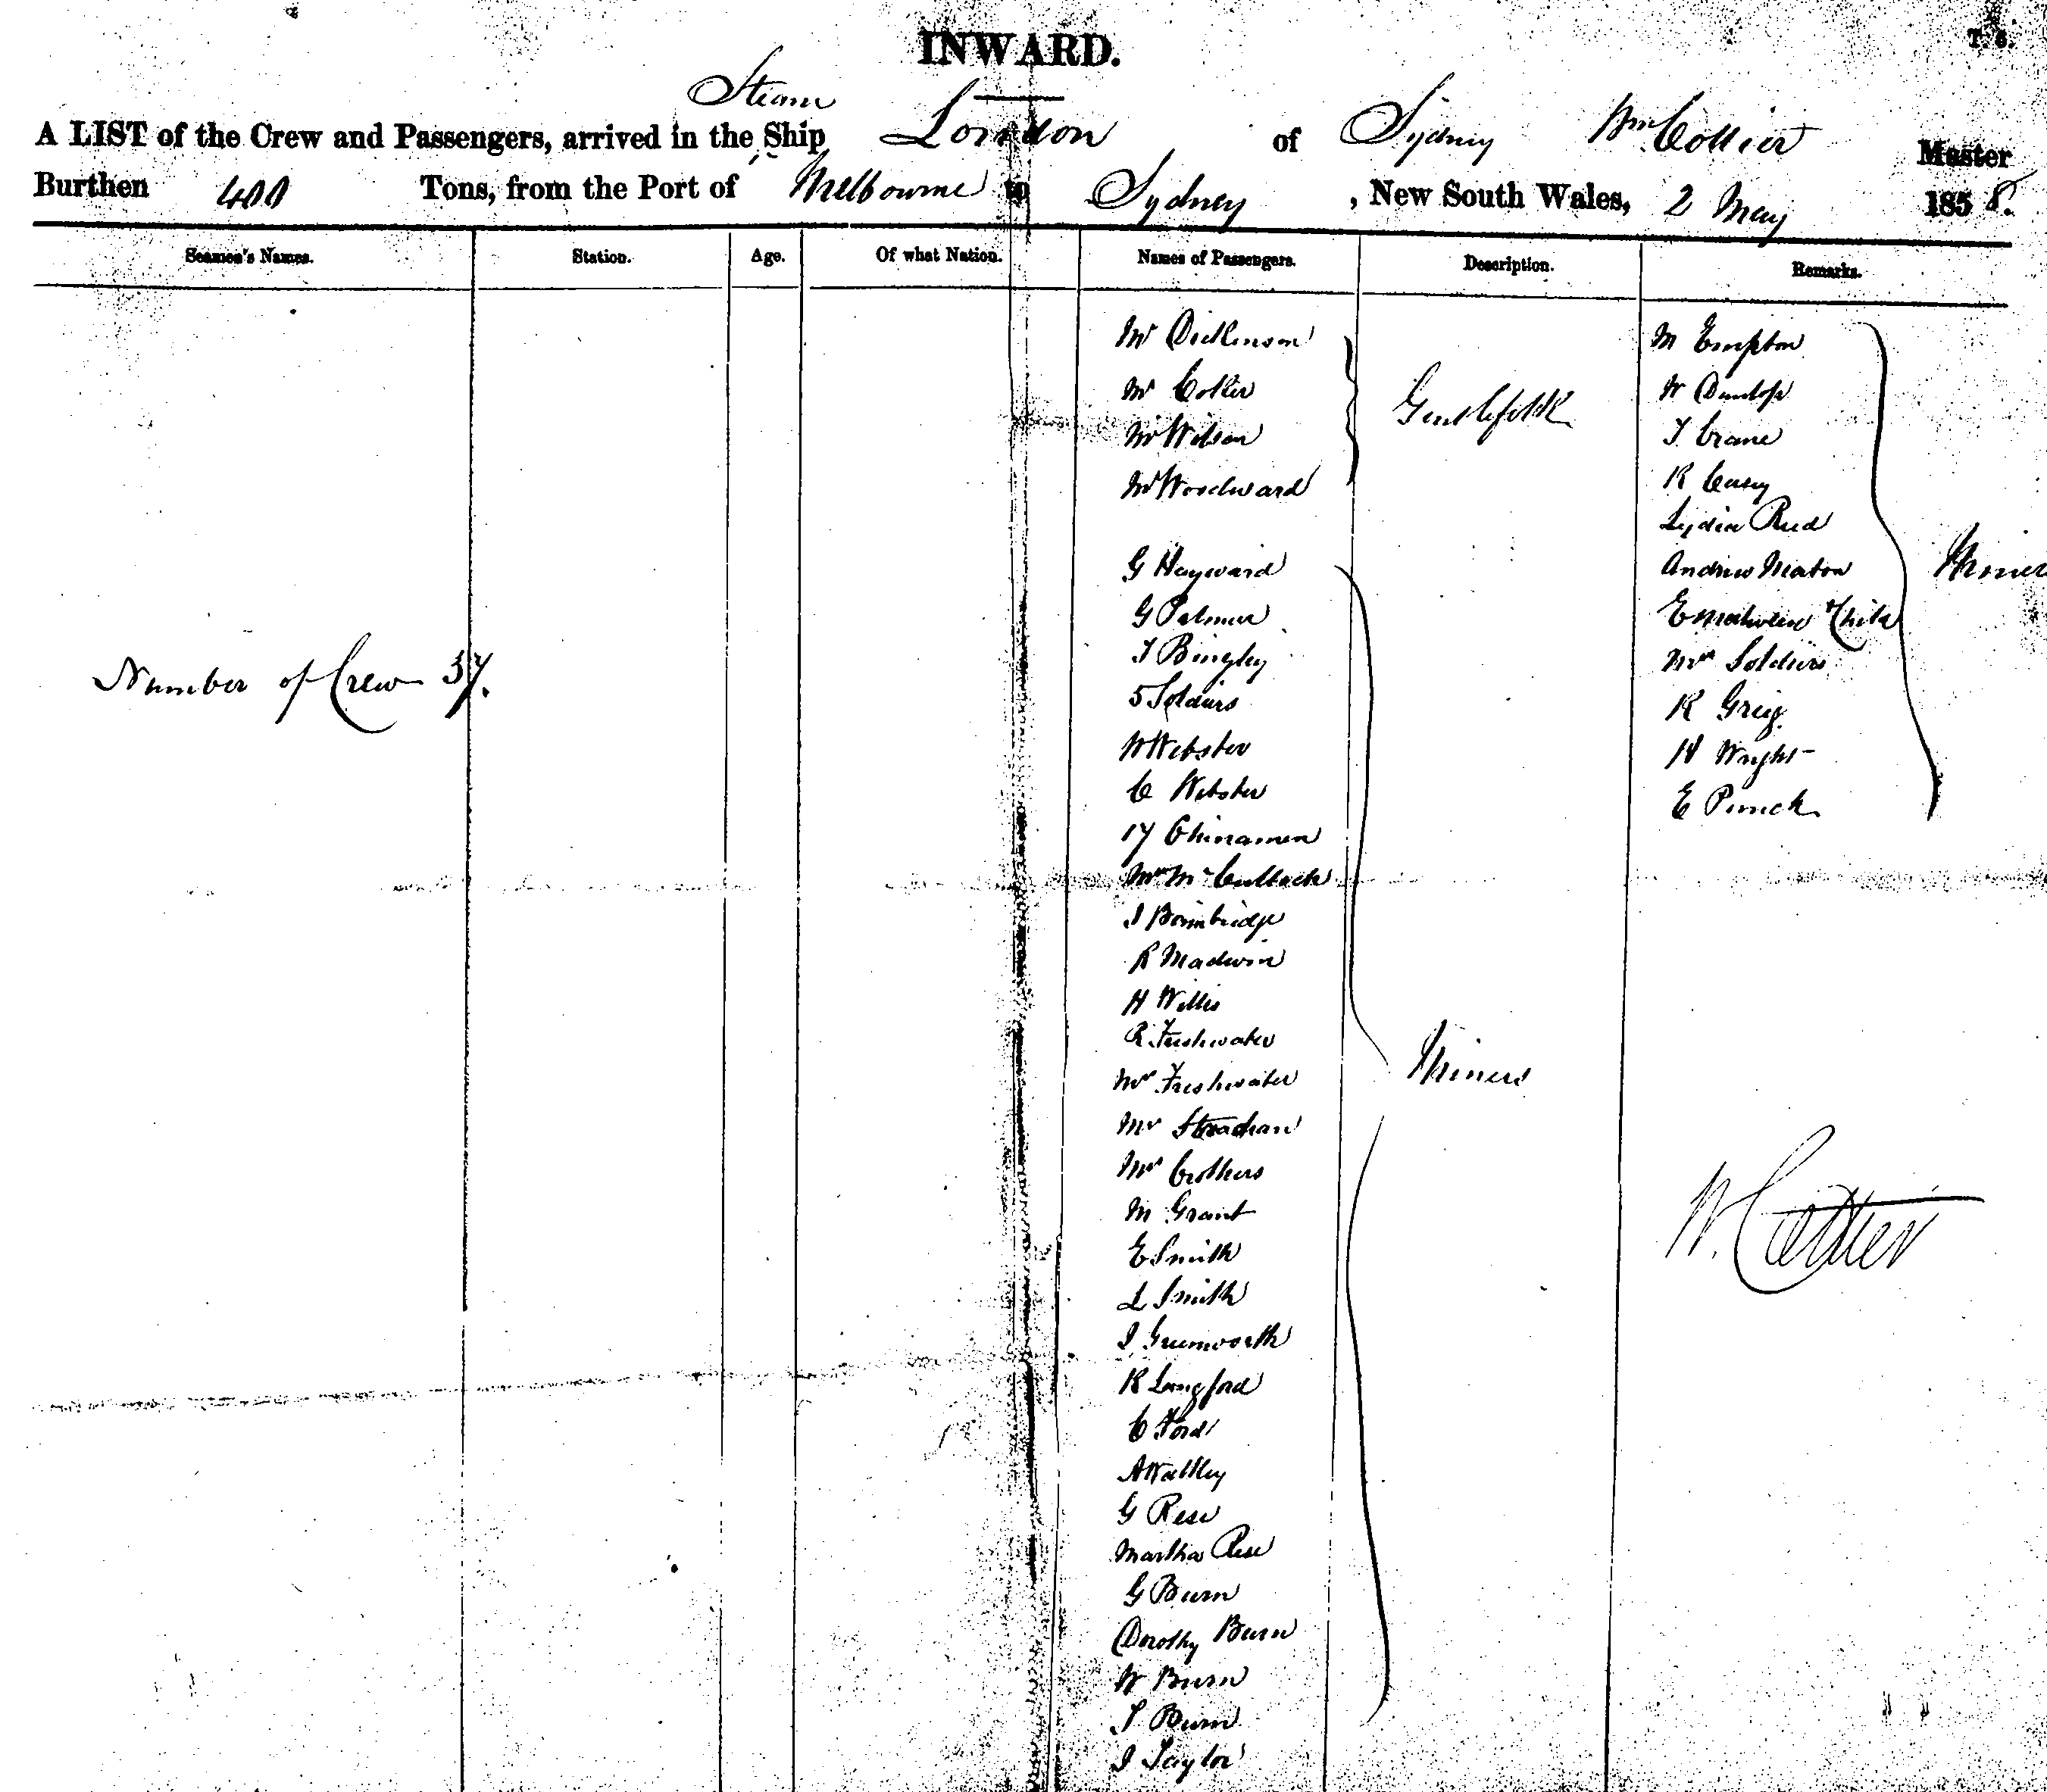 INWARD.
T. 6.
Steam
A LIST of the Crew and Passengers, arrived in the Ship London of Sydney Wm. Collier Master
Burthen 400 Tons, from the Port of Melbourne to Sydney, New South Wales, 2 May 1858.
Seamen's Names. Station. Age. Of what Nation. Names of Passengers. Description. Remarks.
Number of Crew 37.
Mr Dickinson
Mr Collier
Mr Wilson
Mr Woodward
Gentlefolk
G Hayward
G Palmer
J Bingley
5 Soldiers
W Webster
C Webster
17 Chinamen
Mr McCulloch
J Bainbridge
R Madwin
H Willis
R Freshwater
Mrs Freshwater
Mr Strachan
Mrs Crothers
M Grant
E Smith
L Smith
J Greenworth
R Langford
C Ford
A Walkley
G Rese
Martha Rese
G Burn
Dorothy Burn
W Burn
J Burn
J Taylor
Miners
M Empton
W Dunlop
J Crane
R Casey
Lydia Reed
Andrew Meaton
E & Child
Mrs Soldiers
R Greig
H Wright
E Punch
Miners
W. Collier